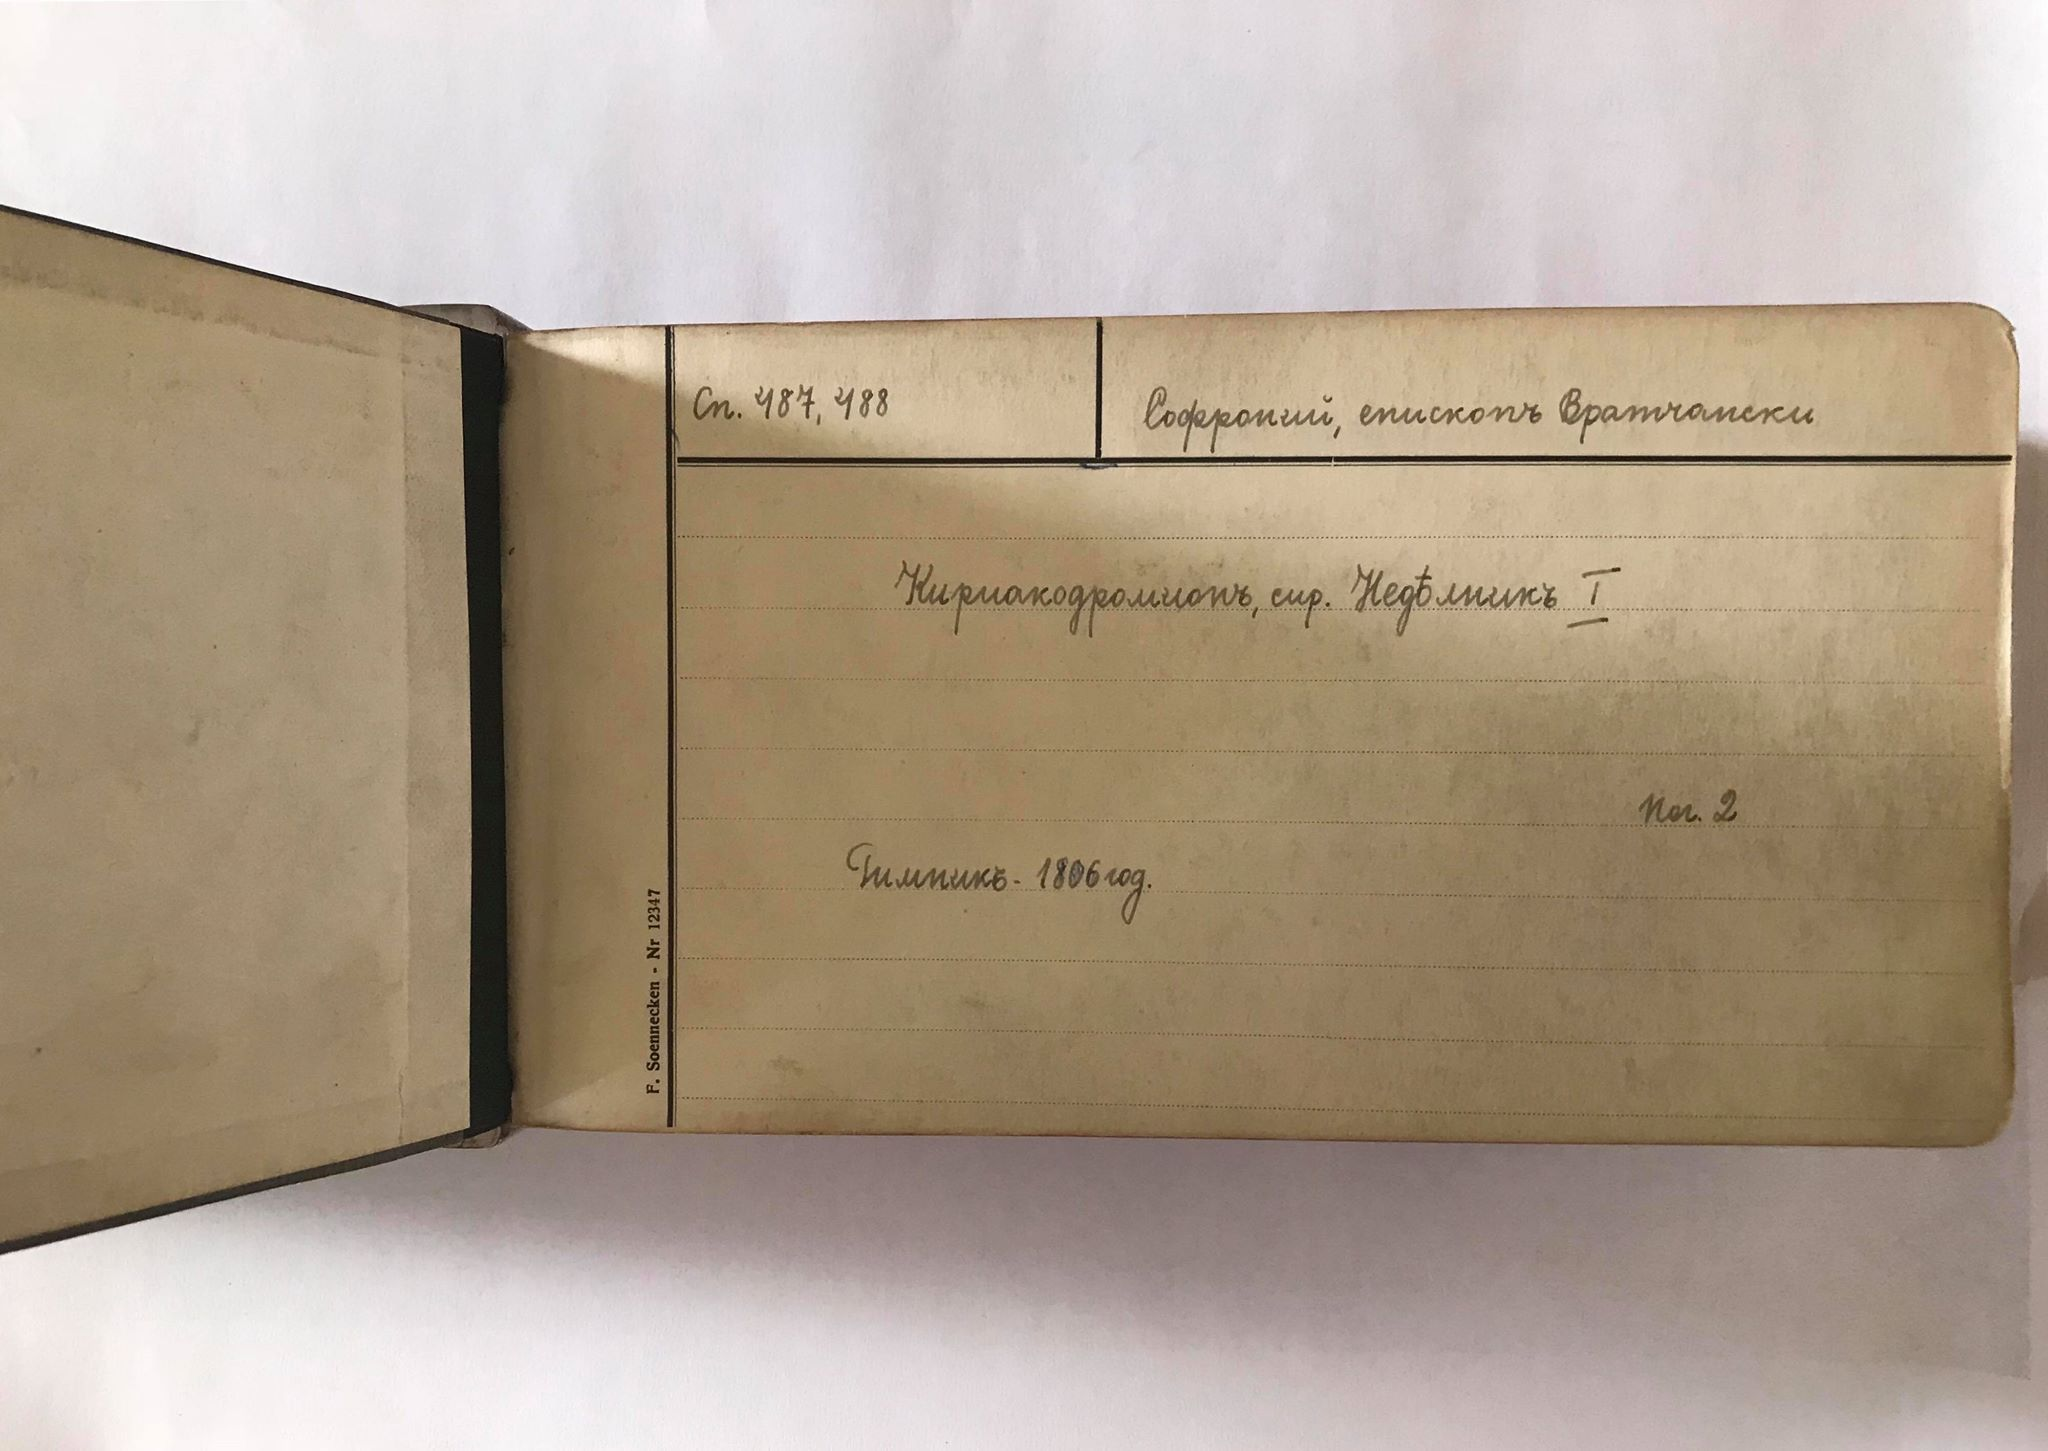 Сп. 487, 488
Софроний, епископъ Вратчански
Кириакодромионъ, сир. Недѣлникъ I
Ног. 2
Римникъ - 1806 год.
F. Soennecken - Nr 12347